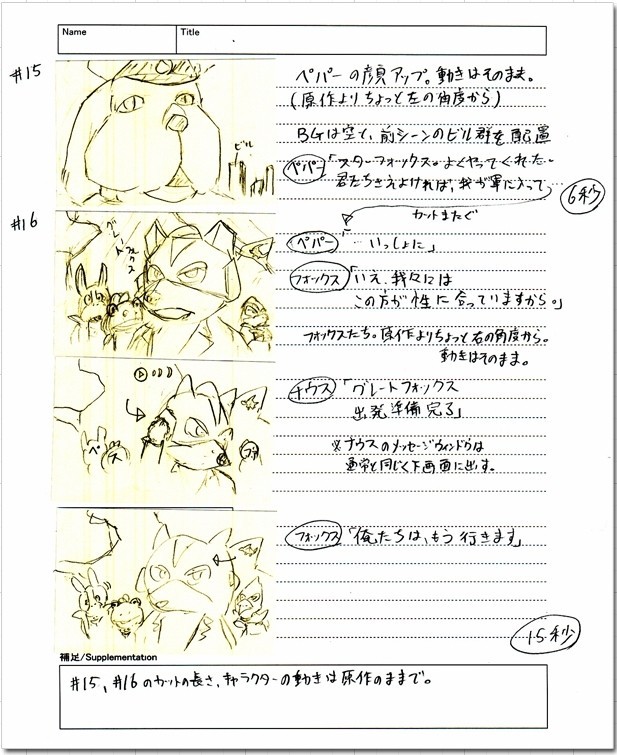 Name Title
#15
ペパーの顔アップ。動きはそのまま。
(原作よりちょっと左の角度から)
BGは空と、前シーンのビル群を配置
ビル
ペパー「スターフォックスよくやってくれた…
君たちさえよければ、我が軍に入って
6秒
カットまたぐ
#16
グレートフォックス
ペパー …いっしょに」
フォックス「いえ、我々には
この方が性に合っていますから。」
フォックスたち。原作よりちょっと右の角度から。
動きはそのまま。
ナウス「グレートフォックス
出発準備完了」
ペ ス ファ
※ナウスのメッセージウィンドウは
通常と同じく下画面に出す。
フォックス「俺たちは、もう行きます」
15秒
補足/Supplementation
#15、#16のカットの長さ、キャラクターの動きは原作のままで。